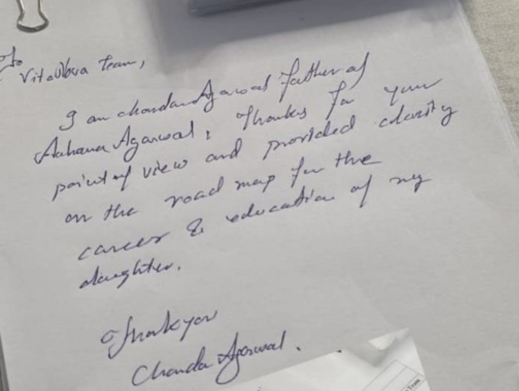 To
VitaNova Team,
I am Chandan Agarwal father of
Aahana Agarwal, Thanks for your
point of view and provided clarity
on the road map for the
career & education of my
daughter.
Thank you
Chanda Agarwal.